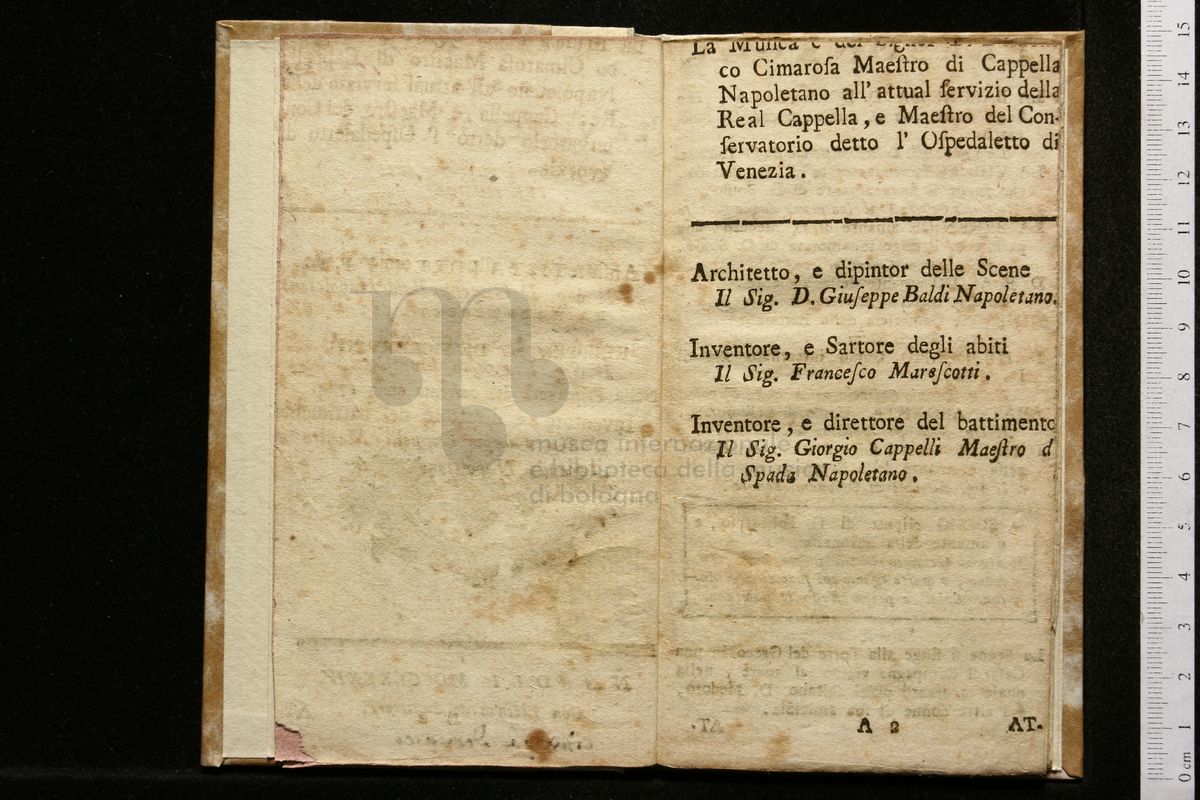 La Muſica è del Signor
co Cimaroſa Maeſtro di Cappella
Napoletano all' attual ſervizio della
Real Cappella, e Maeſtro del Con-
ſervatorio detto l' Oſpedaletto di
Venezia.
Architetto, e dipintor delle Scene
Il Sig. D. Giuſeppe Baldi Napoletano.
Inventore, e Sartore degli abiti
Il Sig. Franceſco Mareſcotti.
Inventore, e direttore del battimento
Il Sig. Giorgio Cappelli Maeſtro d
Spada Napoletano.
A 2 AT.
museo internazionale
e biblioteca della musica
di bologna
0 cm 1 2 3 4 5 6 7 8 9 10 11 12 13 14 15